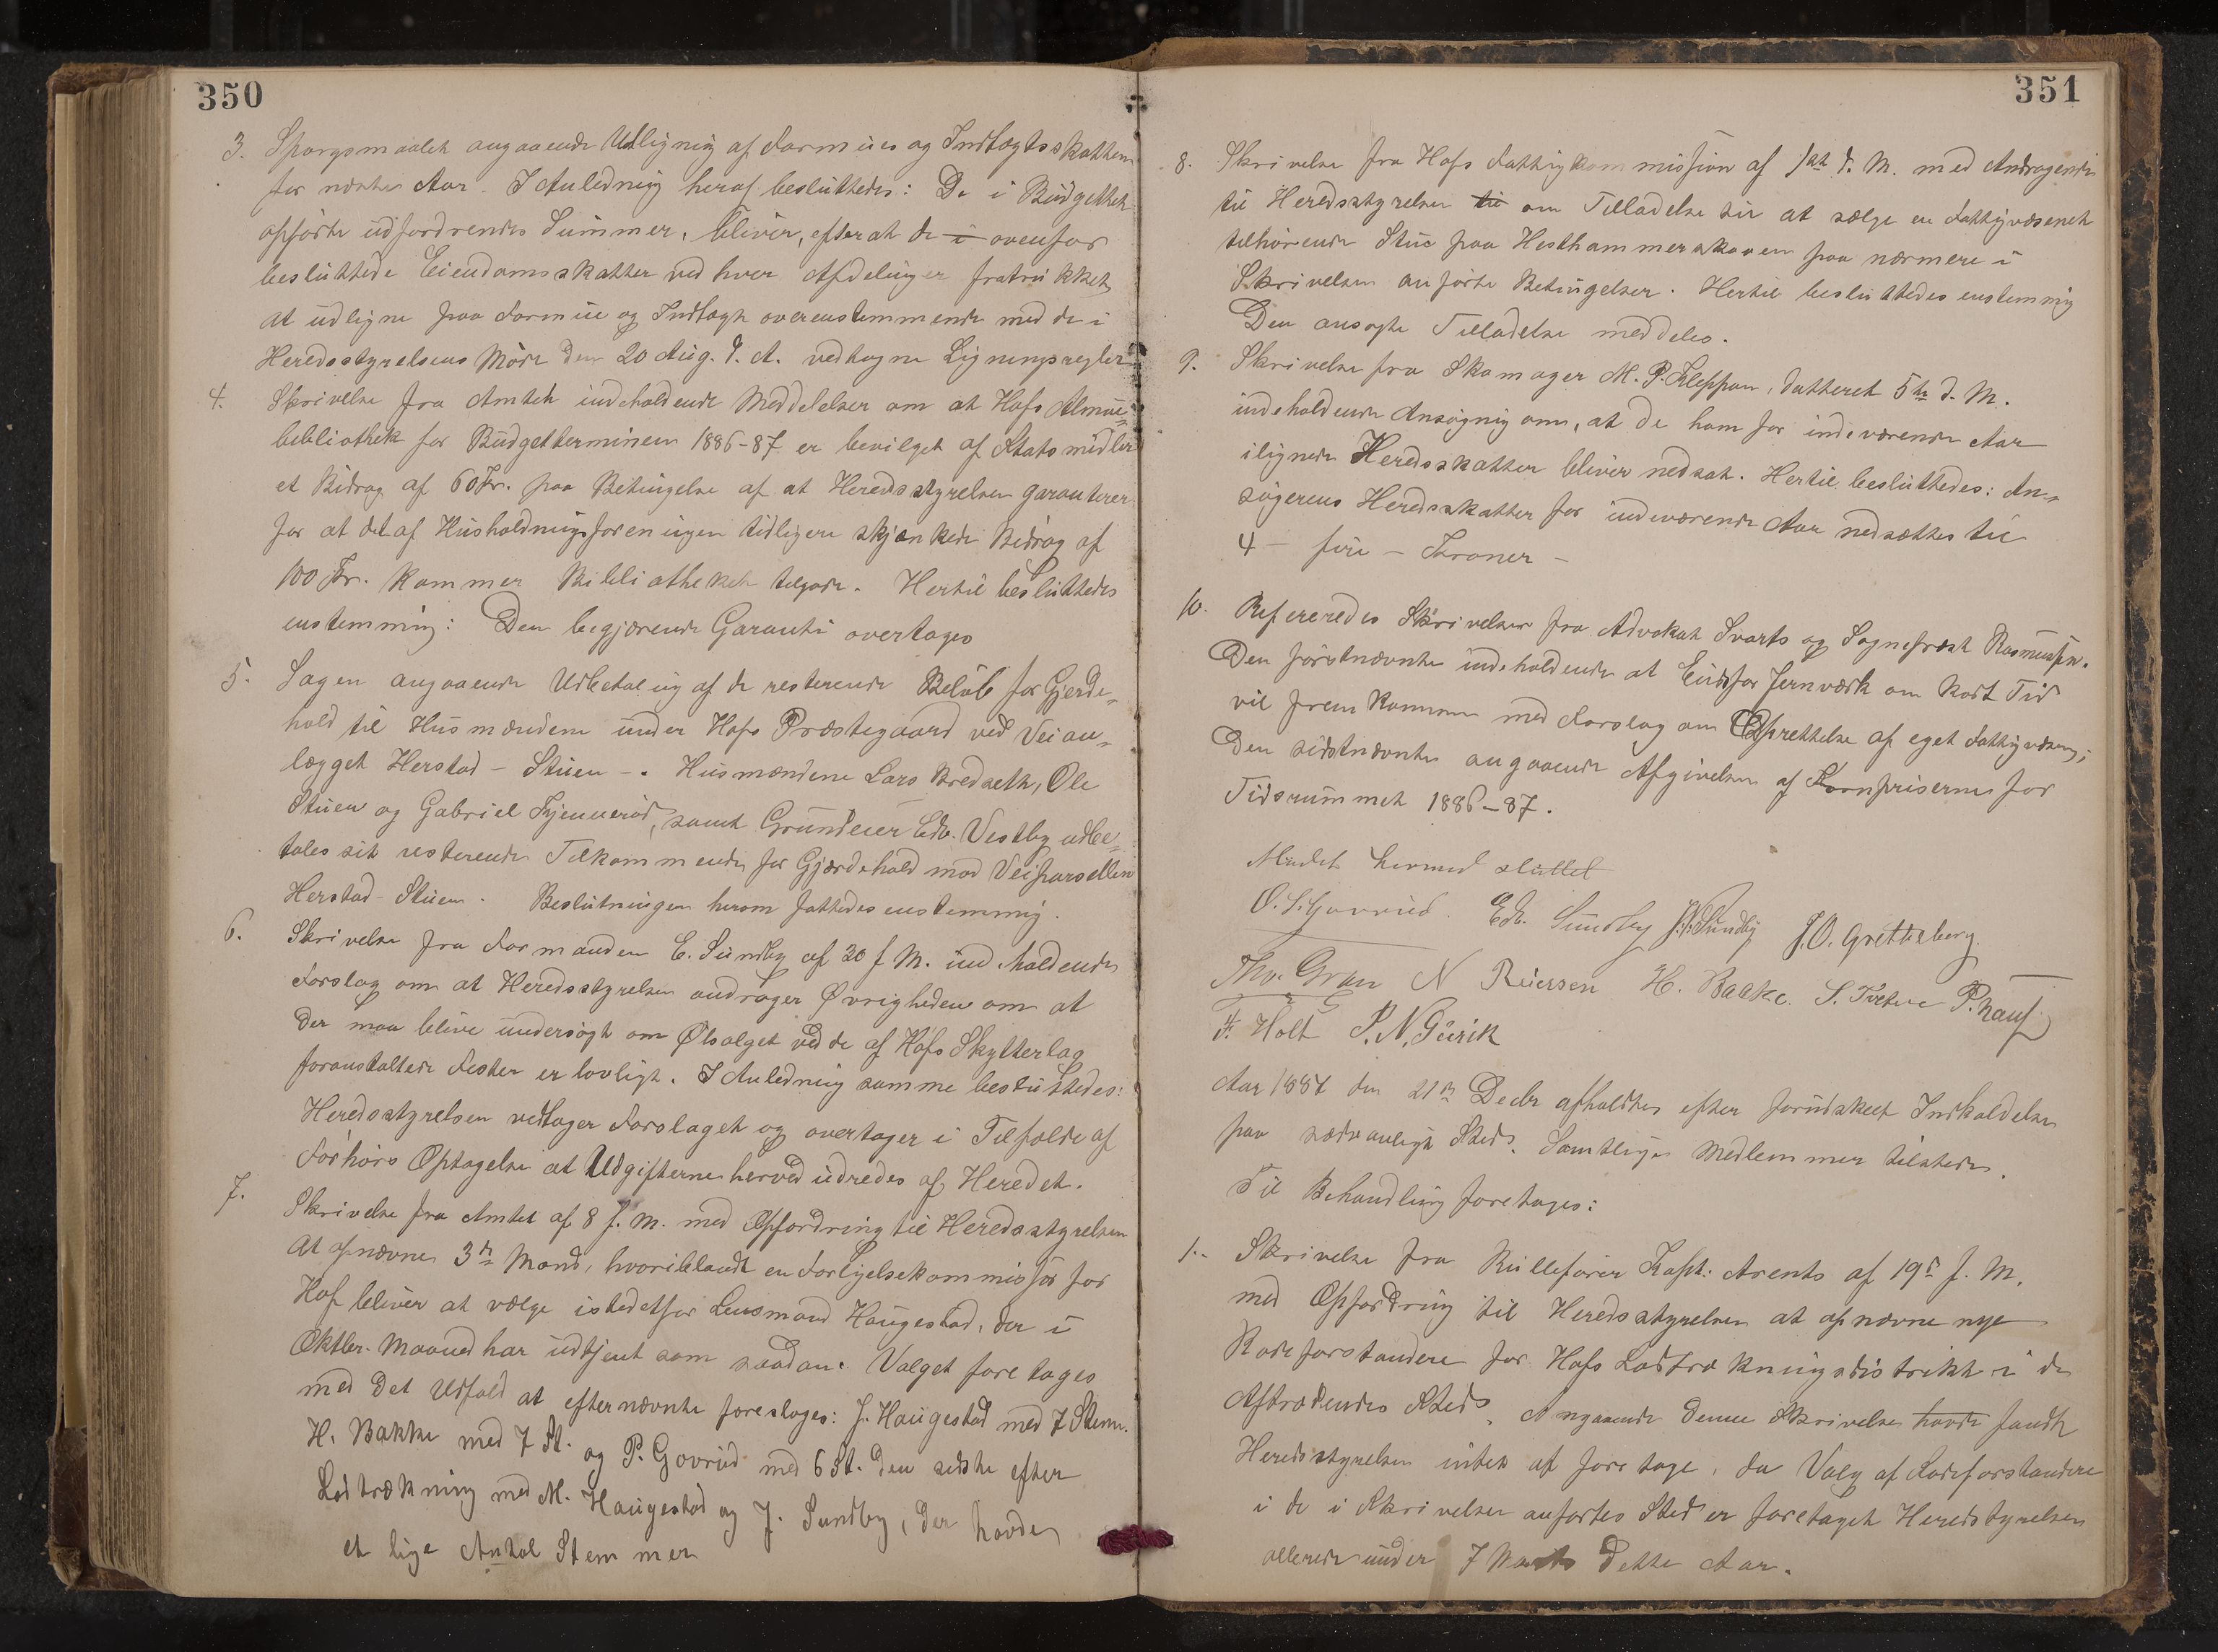 350
3. Spørgsmaalet angaaende Udligning af Formues og Indtægtsskatten
for næste Aar. I Anledning heraf besluttedes: De i Budgettet
opførte udfordrendes Summer, bliver, efterat de i ovenfor
besluttede Eiendomsskatter ved hver Afdelinger fratrukket
at udligne paa Formue og Indtægt overenstemmende med de i
Heredsstyrelsens Møde den 20 Aug. d. A. vedtagne Ligningsregler
4. Skrivelse fra Amtet indeholdende Meddelelser om at Hofs Almue-
bibliothek for Budgetterminen 1886-87 er bevilget af Statsmidler
et Bidrag af 60 Kr. paa Betingelse af at Heredsstyrelsen garanterer
for at det af Husholdningsforeningen tidligere skjænkede Bidrag af
100 Kr. kommer Bibliotheket tilgode. Hertil besluttedes
enstemmig: Den begjærende Garanti overtages
5. Sagen angaaende Udbetaling af de resterende Beløb for Gjerde-
hold til Husmændene under Hofs Præstegaard ved Veian-
lægget Herstad - Stuen -. Husmændene Lars Bredseth, Ole
Stuen og Gabriel Kjennerød, samt Grundeier Edv. Vestby udbe-
tales sit resterende Tilkommende for Gjærdehold mod Veiparsellen
Herstad - Stuen. Beslutningen herom fattedes enstemmig.
6. Skrivelse fra Formanden E. Sundby af 30 f. M. indeholdende
Forslag om at Heredsstyrelsen andrager Øvrigheden om at
der maa blive undersøgt om Ølsalget ved de af Hofs Skytterlag
foranstaltede Fester er lovligt. I Anledning samme besluttedes:
Heredsstyrelsen vedtager Forslaget og overtager i Tilfælde af
Forhørs Optagelse at Udgifterne herved udredes af Heredet.
7. Skrivelse fra Amtet af 8 f. M. med Opfordring til Heredsstyrelsen
at opnævne 3de Mænd, hvoriblandt en Forligelseskommissær for
Hof bliver at vælge istedetfor Lensmand Haugestad, der i
Oktbr. Maaned har udtjent som saadan. Valget foretages
med det Udfald at efternævnte foreslages: J. Haugestad med 7 Stem.
H. Bakke med 7 St. og P. Govrud med 6 St. den sidste efter
Lodtrækning med M. Haugestad og J. Sundby, der havde
et lige Antal Stemmer
351
8. Skrivelse fra Hofs Fattigkommission af 1ste d. M. med Andragende
til Heredsstyrelsen til om Tilladelse til at sælge en Fattigvæsenet
tilhørende Stue paa Hesthammerskoven paa nærmere i
Skrivelsen anførte Betingelser. Hertil besluttedes enstemmig
Den ansøgte Tilladelse meddeles.
9. Skrivelse fra Skomager M. P. Kleppan, datteret 5te d. M.
indeholdende Ansøgnig om, at de ham for indeværende Aar
ilignede Heredsskatter bliver nedsat. Hertil besluttedes: An-
søgerens Heredsskatter for indeværende Aar nedsættes til
4 - fire - Kroner -
10. Refereredes Skrivelser fra Advokat Svarts og Sogneprest Rasmussen.
Den førstnævnte indeholdende at Eidsfos Jernværk om kort Tid
vil fremkomme med Forslag om Oprettelse af eget Fattigvæsen;
Den sidstnævnte angaaende Afgivelsen af Kornpriserne for
Tidsrummet 1886-87.
Mødet hermed sluttet
O. L. Govrud. Edv. Sundby J. J. Sundby J. O. Grettisberg.
Thv. Gran N Reiersen H. Bakke. S. Tveten P. Knauf
F. Holt P. N. Gurik
Aar 1887 den 21de Decbr afholdtes efter forudskeet Indkaldelse
paa sædvanligt Sted. Samtlige Medlemmer tilstede.
Til Behandling foretages:
1. Skrivelse fra Rullefører Kapt: Arents af 19de f. M.
med Opfordring til Heredsstyrelsen at opnævne nye
Rodeforstandere for Hofs Lodtrækningsdistrikt i de
Aftrædendes Sted. Angaaende denne Skrivelse havde fandt
Heredsstyrelsen intet at foretage, da Valg af Rodeforstandere
i de i Skrivelsen anførtes Sted er foretaget Heredstyrelsen
allerede under 7 Marts dette Aar.